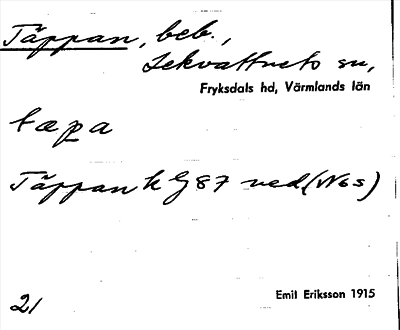 Täppan, beb.,
Lekvattnets sn,
Fryksdals hd, Värmlands län
tæpa
Täppan k G 87 ned (No s)
21
Emil Eriksson 1915